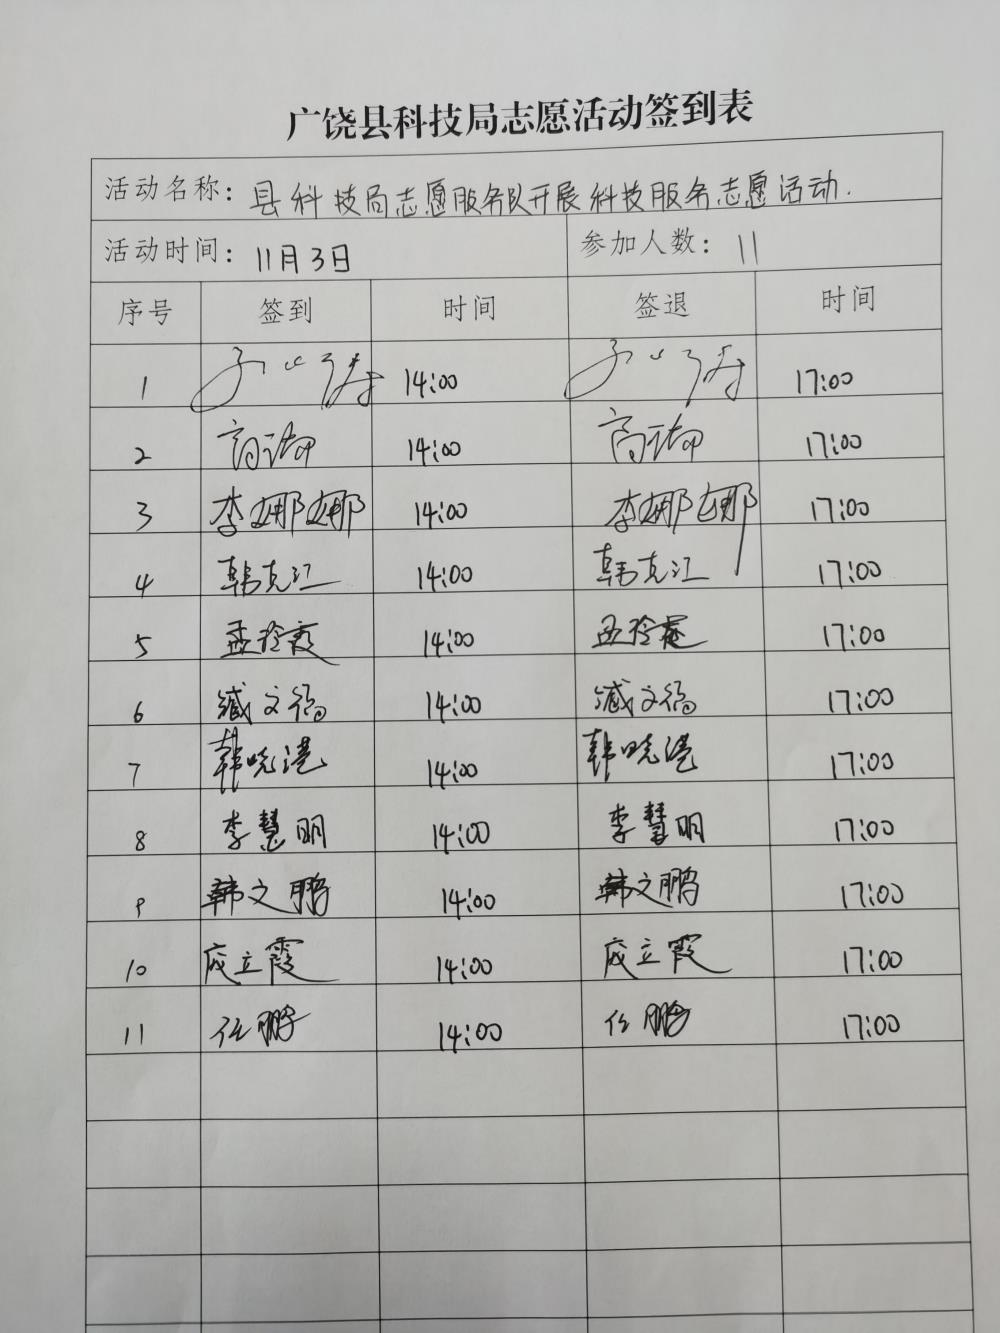 广饶县科技局志愿活动签到表
活动名称：县科技局志愿服务队开展科技服务志愿活动.
活动时间：11月3日 参加人数：11
序号 签到 时间 签退 时间
1 14:00 17:00
2 14:00 17:00
3 李娜娜 14:00 李娜娜 17:00
4 韩克江 14:00 韩克江 17:00
5 孟玲霞 14:00 孟玲霞 17:00
6 臧文 14:00 臧文 17:00
7 韩晓港 14:00 韩晓港 17:00
8 李慧明 14:00 李慧明 17:00
9 韩文鹏 14:00 韩文鹏 17:00
10 成立霞 14:00 成立霞 17:00
11 任鹏 14:00 任鹏 17:00